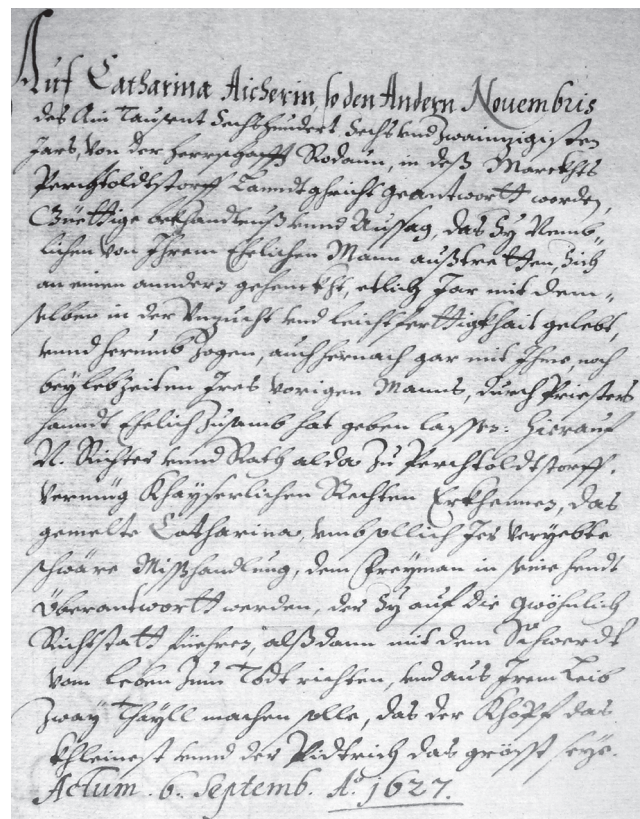 Auf Catharina Aicherin, so den Andern Nouembris
des Ain Tausent Sechshundert Sechs vnd zwainzigisten
Jars, von der Herrschafft Rodaun, in deß Marckhts
Perchtoldtstorff Lanndtghricht geantwortt worden,
Güettige bekhandtnuß vnnd Aussag, das Sy Nemb-
lichen von Ihrem Ehelichen Mann außtretten, Sich
an einen anndern gehenckht, etlich Jar mit dem-
selben in der Vnzucht vnd leichtferttigkhait gelebt,
vnnd herumb zogen, auch hernach gar mit Ihme, noch
bey lebzeiten Ires vorigen Manns, durch Priesters
hanndt Ehelich zusamb hat geben lassen: Hierauf
N. Richter vnnd Rath alda zu Perchtoldtstorff,
vermüg Khayserlichen Rechten Erkhennen, das
gemelte Catharina, vmb sollich Ier veryebte
schwäre Mißhandlung, dem Freyman in seine hendt
überantwortt werden, der Sy auf die gwöhnlich
Richtstatt füehren, alßdann mit dem Schwerdt
vom leben zum Todt richten, vnd aus Irem Leib
zway Thayll machen solle, das der Khopf das
khleinest vnnd der Pidtrich das gröst seye.
Actum . 6. Septemb. Aº 1627.